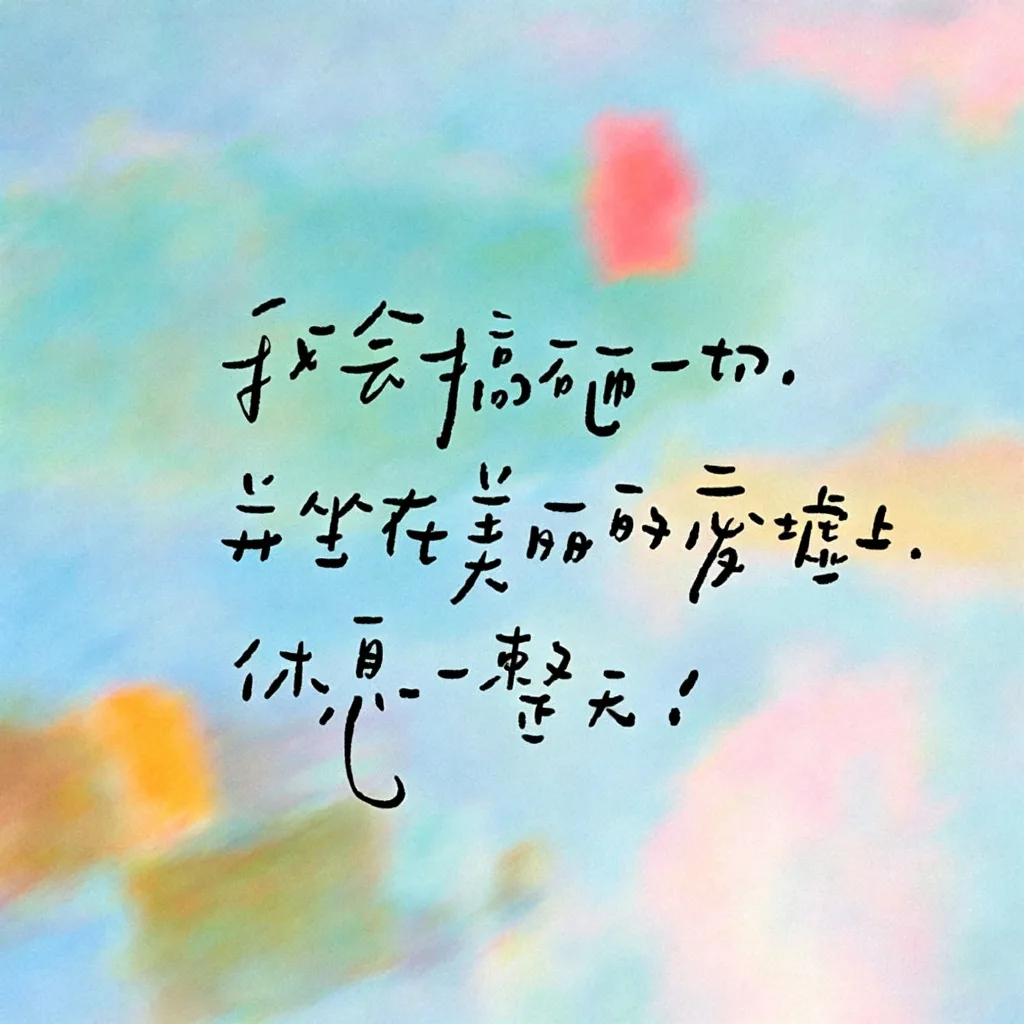 我会搞砸一切.
并坐在美丽的废墟上.
休息一整天!